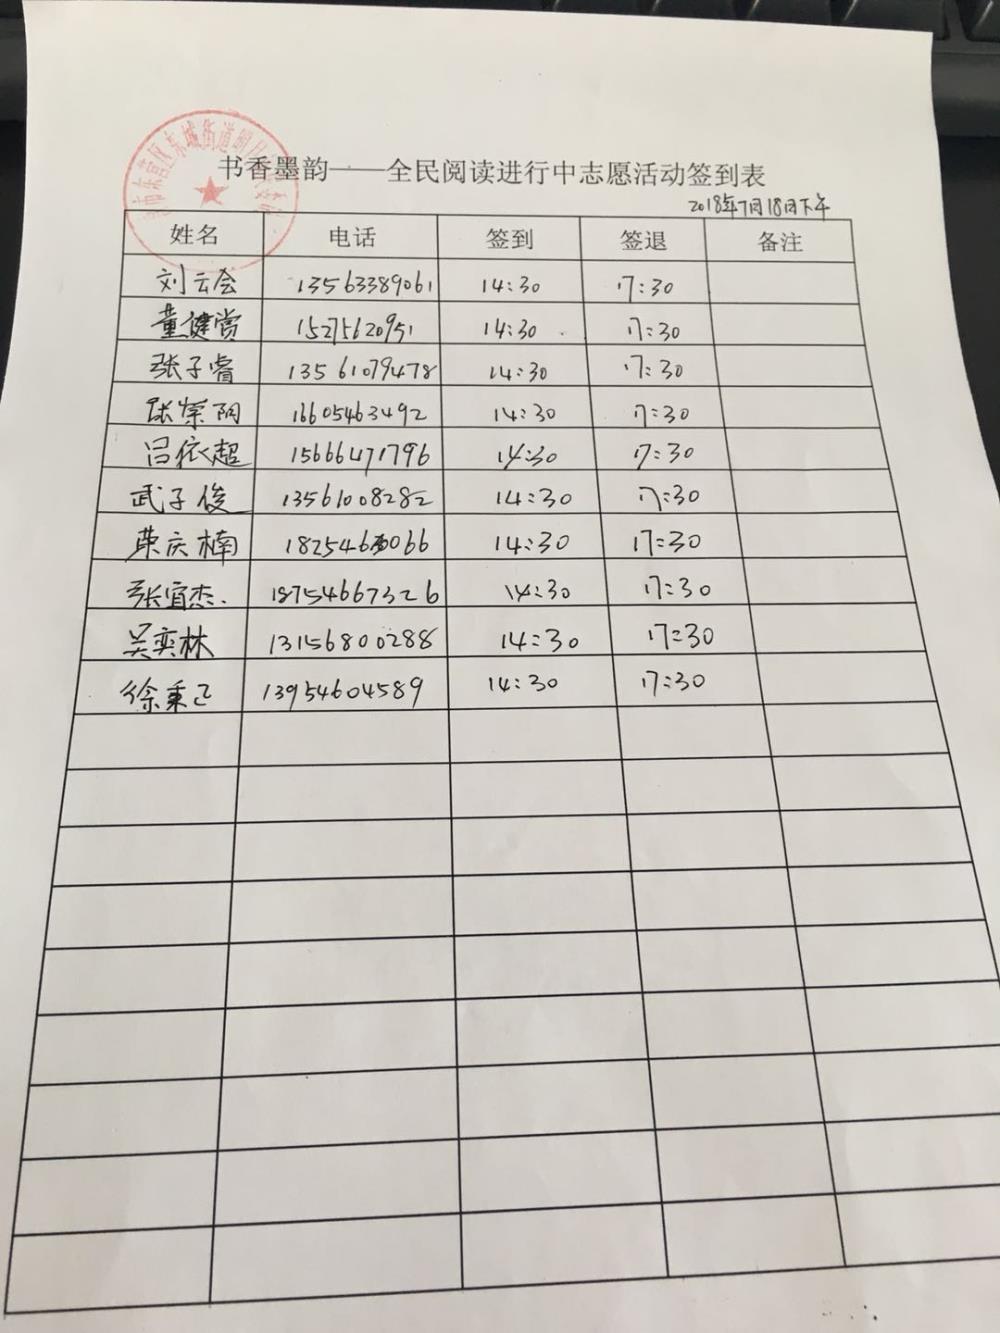 书香墨韵——全民阅读进行中志愿活动签到表
2018年7月18日下午
姓名 电话 签到 签退 备注
刘云会 13563389061 14:30 17:30
董健赏 15275620951 14:30 17:30
张子睿 13561079478 14:30 17:30
张荣阴 16605463492 14:30 17:30
吕依超 15666471796 14:30 17:30
武子俊 13561008282 14:30 17:30
荣庆楠 18254630066 14:30 17:30
张宜杰 18754667326 14:30 17:30
吴奕林 13156800288 14:30 17:30
徐秉己 13954604589 14:30 17:30